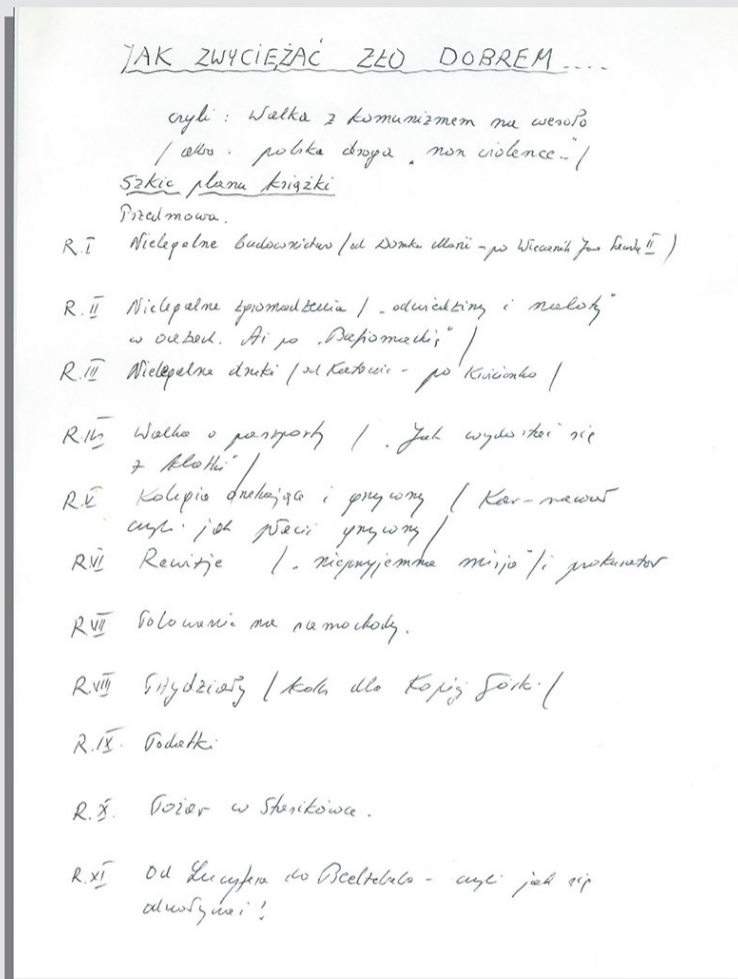 JAK ZWYCIĘŻAĆ ZŁO DOBREM....
czyli: Walka z komunizmem na wesoło
/ albo. polska droga „non violence-"/
Szkic planu książki
Przedmowa.
R.I Nielegalne budownictwo / od Domku Marii - po Wieczernik Jana Pawła II )
R.II Nielegalne zgromadzenia / „odwiedziny i naloty"
w oazach. Aż po /
R.III Nielegalne druki / od Katowic - po Krościenko /
R.IV Walka o paszporty / „Jak wydostać się
z klatki" /
R.V Kolegia i grzywny /
czyli. jak płacić grzywny /
R.VI Rewizje / „nieprzyjemna misja"/ i prokurator
R.VII Polowanie na samochody.
R.VIII Przydziały / koks dla Kopiej Górki /
R.IX. Podatki
R.X. Pożar w Stasikówce.
R.XI Od Lucyfera do Beelzebuba - czyli jak się
odwoływać!